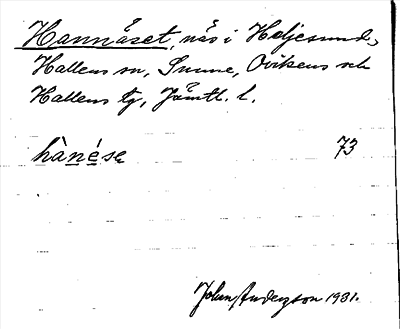 Hannåset, näs i Heljesund,
Hallens sn, Sunne, Ovikens och
Hallens tg, Jämtl. l.
hànése 73
Johan Anderzson 1931.